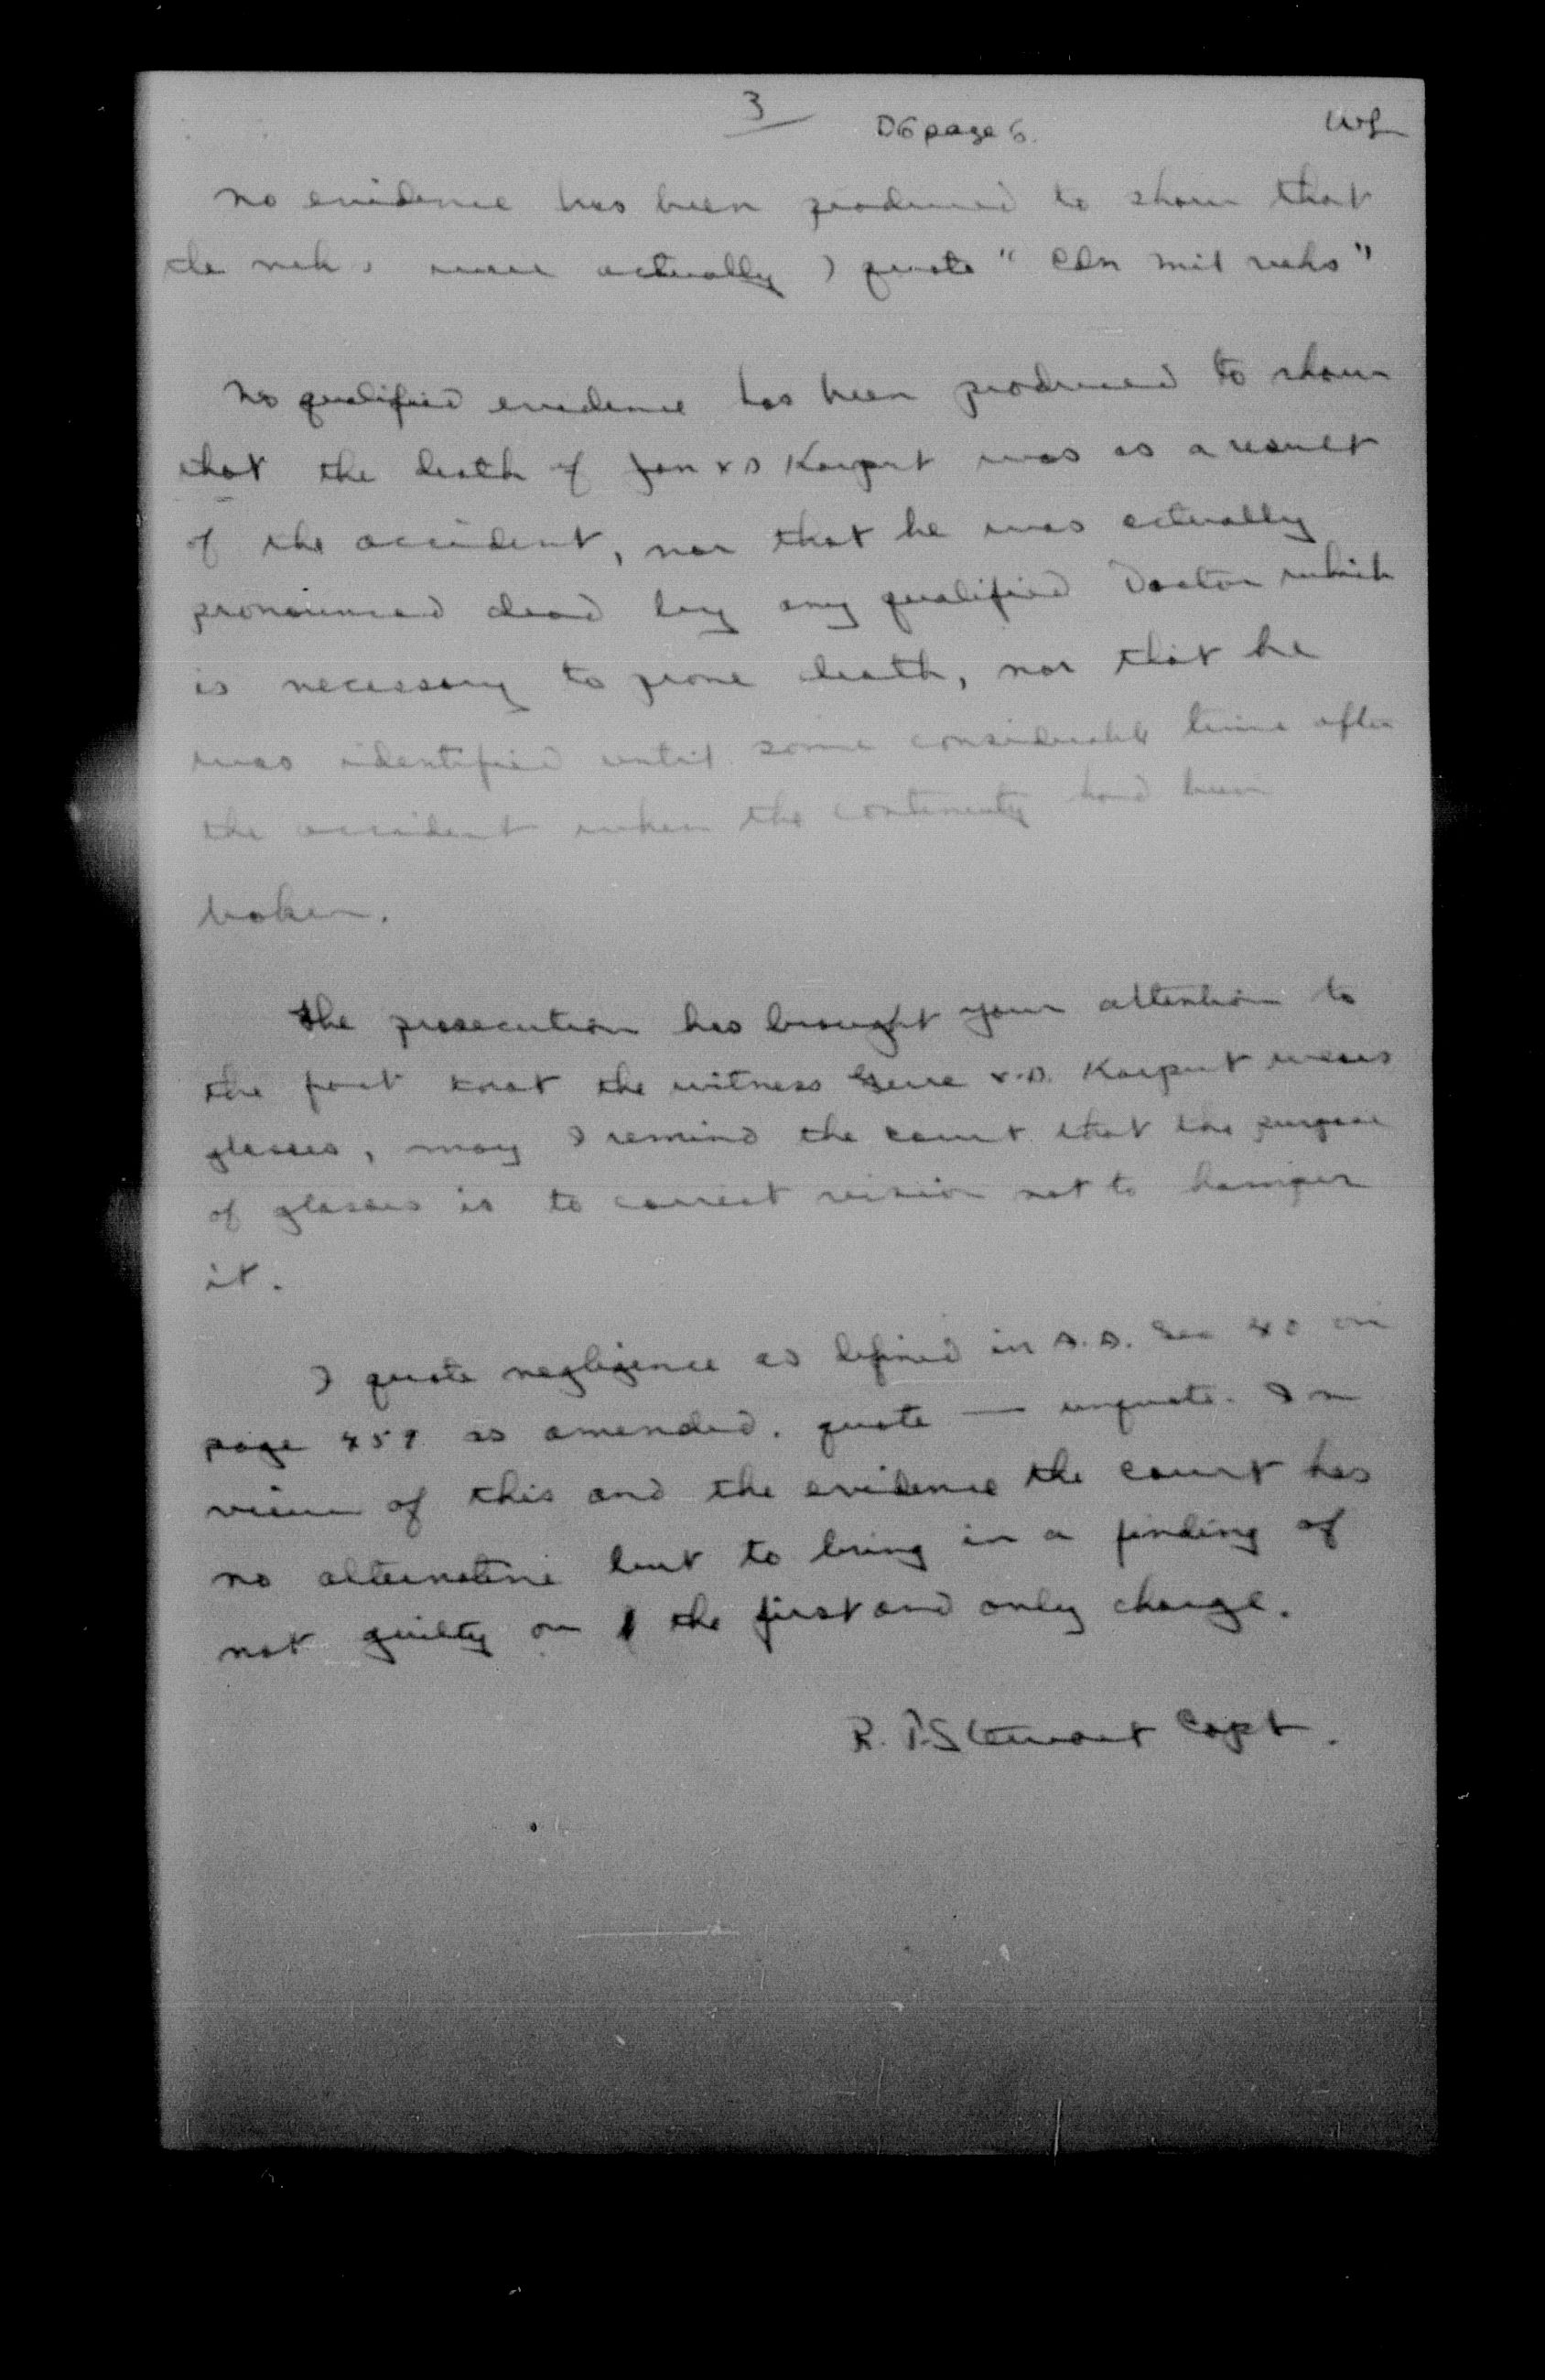 3
D6 page 6.
No evidence has been produced to show that
the vehs were actually I quote "Cdn mil vehs"
No qualified evidence has been produced to show
that the death of Jan v D Karput was as a result
of the accident, nor that he was actually
pronounced dead by any qualified Doctor which
is necessary to prove death, nor that he
was identified until some considerable time after
the accident when the continuity had been
broken.
The prosecution has brought your attention to
the fact that the witness v.D. Karput wears
glasses, may I remind the court that the purpose
of glasses is to correct vision not to hamper
it.
I quote negligence as defined in A.A. Sec 40 on
page 459 as amended. quote — unquote. In
view of this and the evidence the court has
no alternative but to bring in a finding of
not guilty on the first and only charge.
R. P. Stewart Capt.